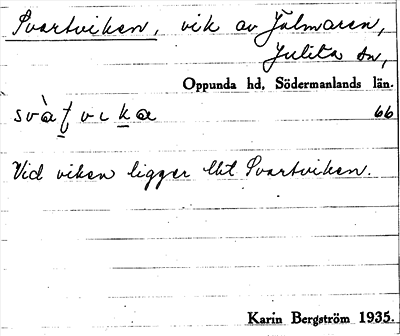 Svartviken, vik av Jalmaren,
Julita sn,
Oppunda hd, Södermanlands län.
svàʈvıka 66
Vid viken ligger lht Svartviken.
Karin Bergström 1935.